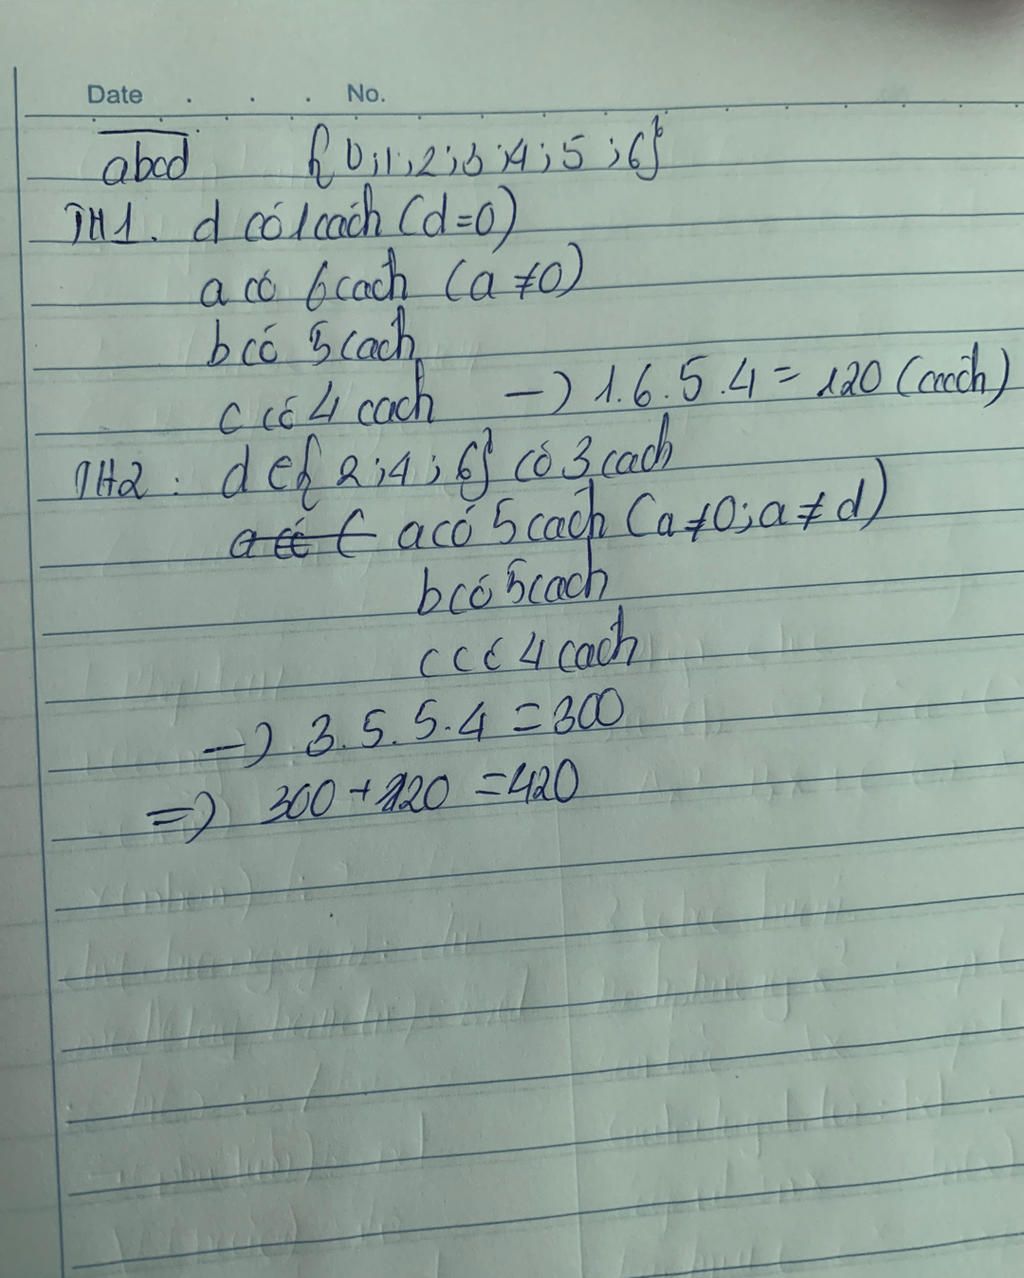 Date . . . No.
abcd {0;1;2;3;4;5;6}
TH1. d có 1 cách (d=0)
a có 6 cách (a≠0)
b có 5 cách
c có 4 cách → 1.6.5.4 = 120 (cách)
TH2: d∈{2;4;6} có 3 cách
a có 5 cách (a≠0;a≠d)
b có 5 cách
c có 4 cách
→ 3.5.5.4 = 300
⇒ 300+120 = 420